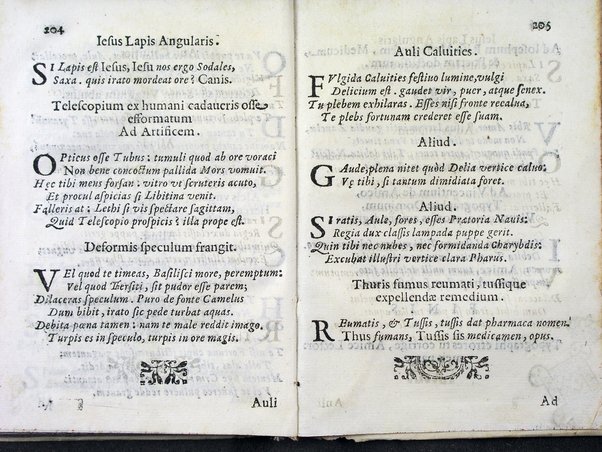 204
Iesus Lapis Angularis.
SI Lapis est Iesus, Iesu nos ergo Sodales,
Saxa. quis irato mordeat ore? Canis.
Telescopium ex humani cadaueris osse
efformatum
Ad Artificem.
OPticus osse Tubus: tumuli quod ab ore voraci
Non bene concoctum pallida Mors vomuit.
Hęc tibi mens forsan: vitro vt scruteris acuto,
Et procul aspicias si Libitina venit.
Falleris at: Lethi si vis spectare sagittam,
Quid Telescopio prospicis? illa prope est.
Deformis speculum frangit.
VEl quod te timeas, Basilisci more, peremptum:
Vel quod Thersiti, sit pudor esse parem;
Dilaceras speculum. Puro de fonte Camelus
Dum bibit, irato sic pede turbat aquas.
Debita pœna tamen: nam te male reddit imago.
Turpis es in speculo, turpis in ore magis.
Auli
205
Auli Caluities.
FVlgida Caluities festiuo lumine, vulgi
Delicium est. gaudet vir, puer, atque senex.
Tu plebem exhilaras. Esses nisi fronte recalua,
Te plebs fortunam crederet esse suam.
Aliud.
GAude, plena nitet quòd Delia vertice caluo:
Vę tibi, si tantum dimidiata foret.
Aliud.
SI ratis, Aule, fores, esses Pratoria Nauis:
Regia dux classis lampada puppe gerit.
Quin tibi nec nubes, nec formidanda Charybdis:
Excubat illustri vertice clara Pharus.
Thuris fumus reumati, tussique
expellendæ remedium.
REumatis, & Tussis, tussis dat pharmaca nomen.
Thus fumans, Tussis sis medicamen, opus.
Ad